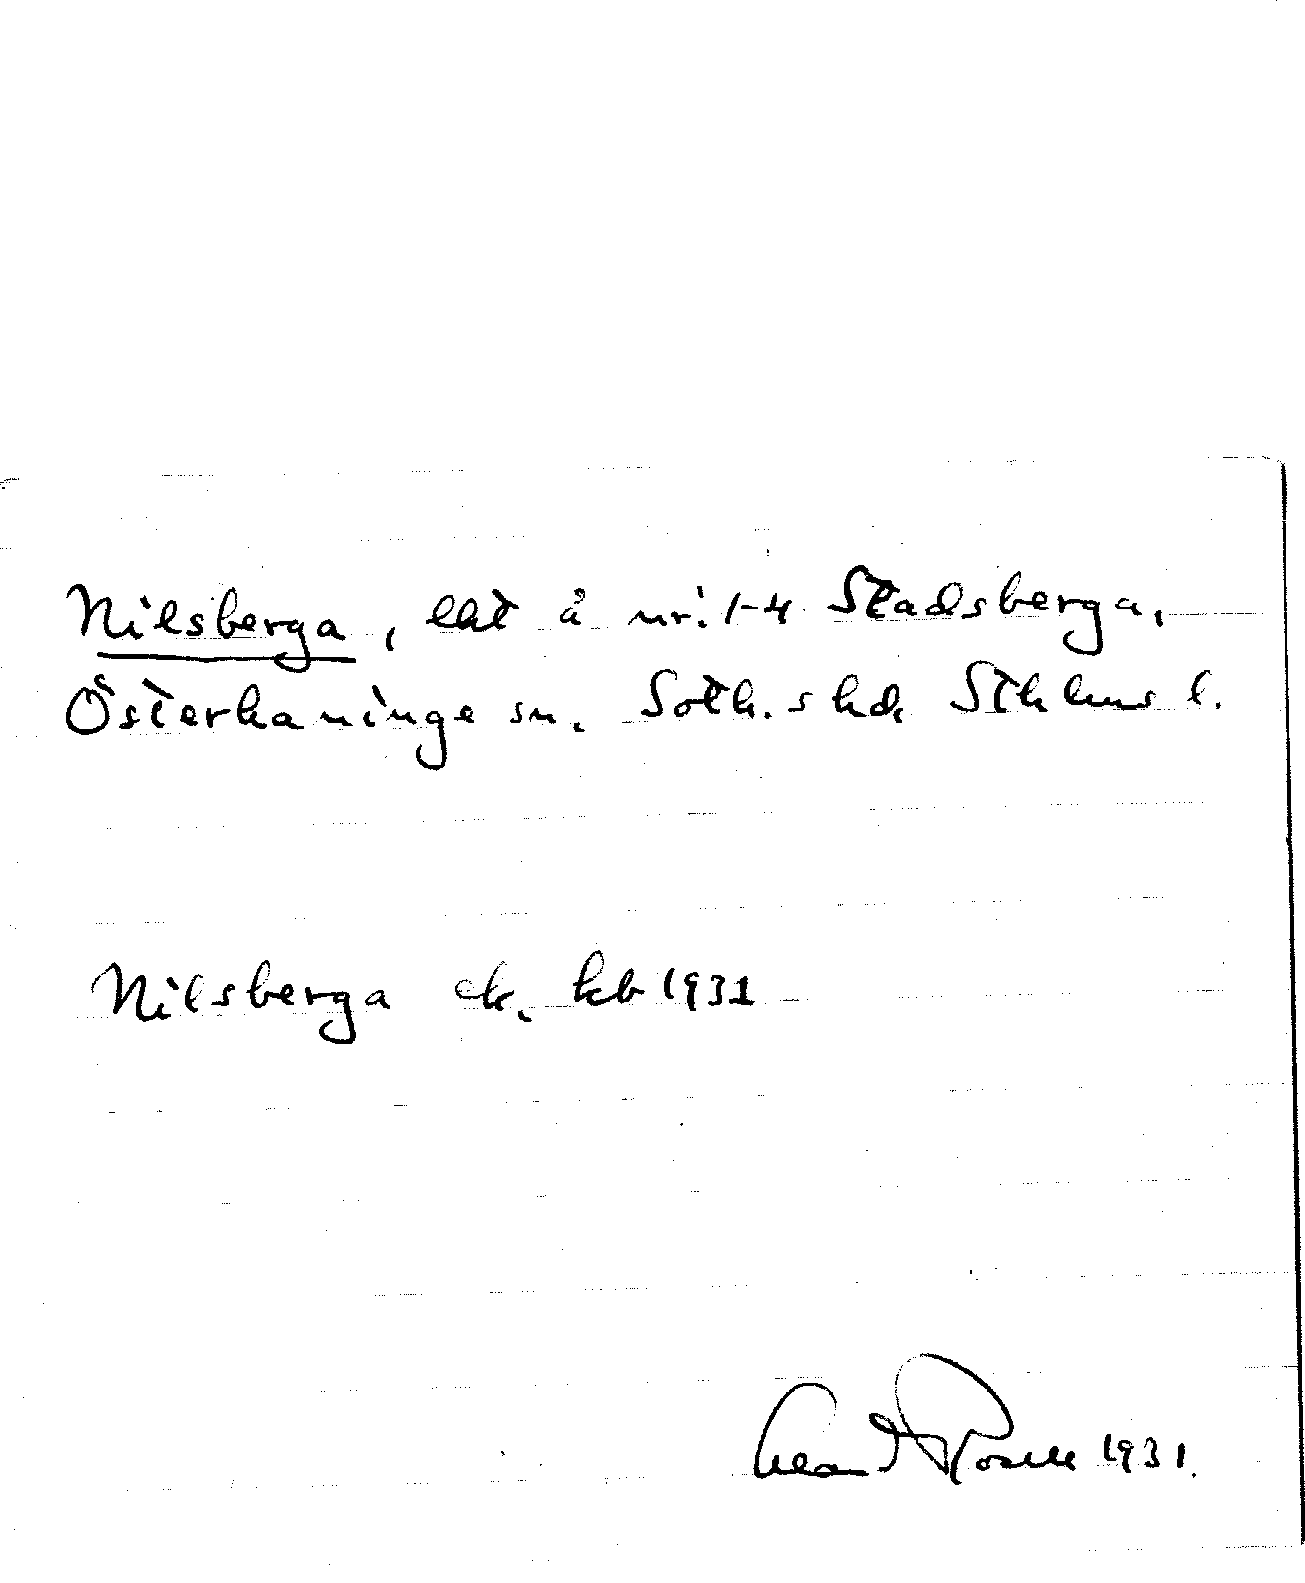 Nilsberga, lht å nr. 1-4 Stadsberga,
Österhaninge sn. Soth.s hd. Sthlms l.
Nilsberga ck. kb 1931
1931.